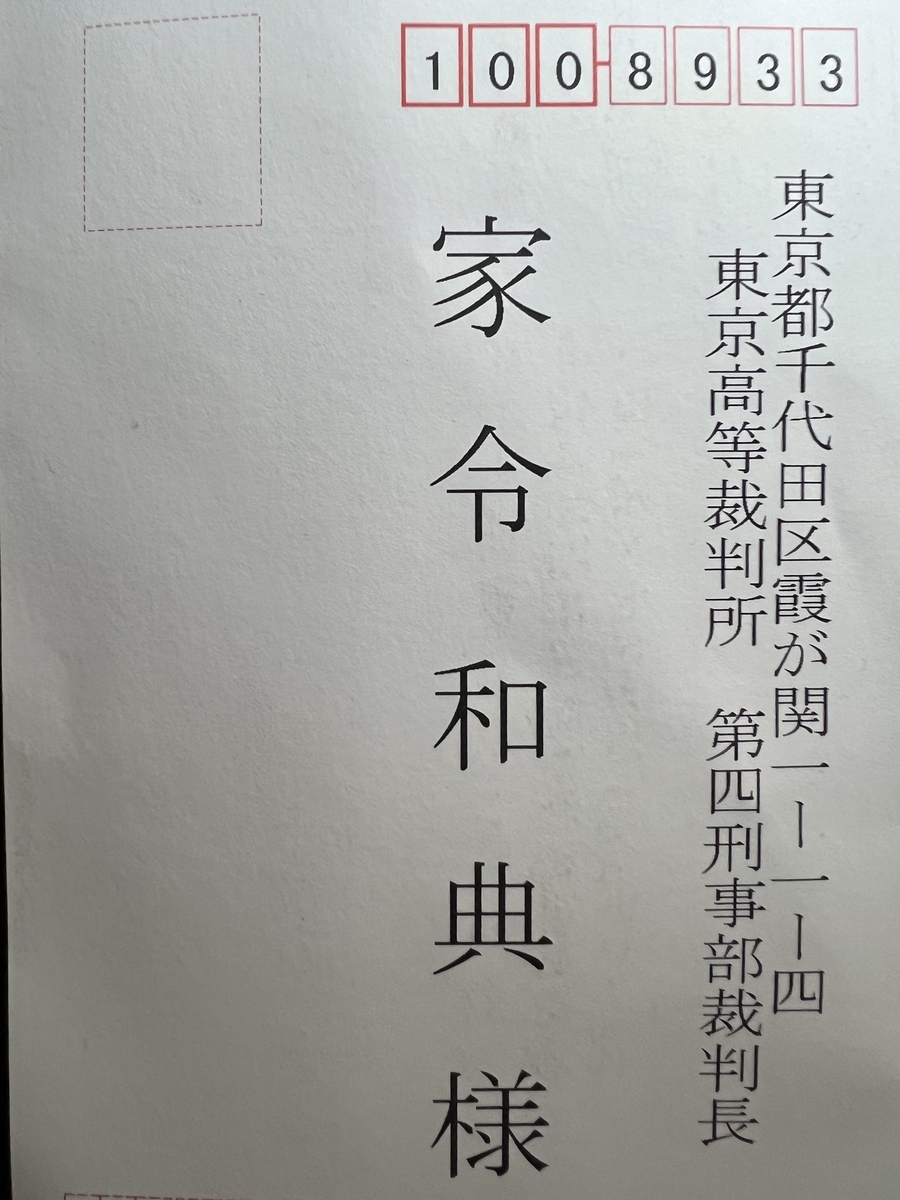 100-8933
東京都千代田区霞が関一ー一ー四
東京高等裁判所　第四刑事部裁判長
家令和典様